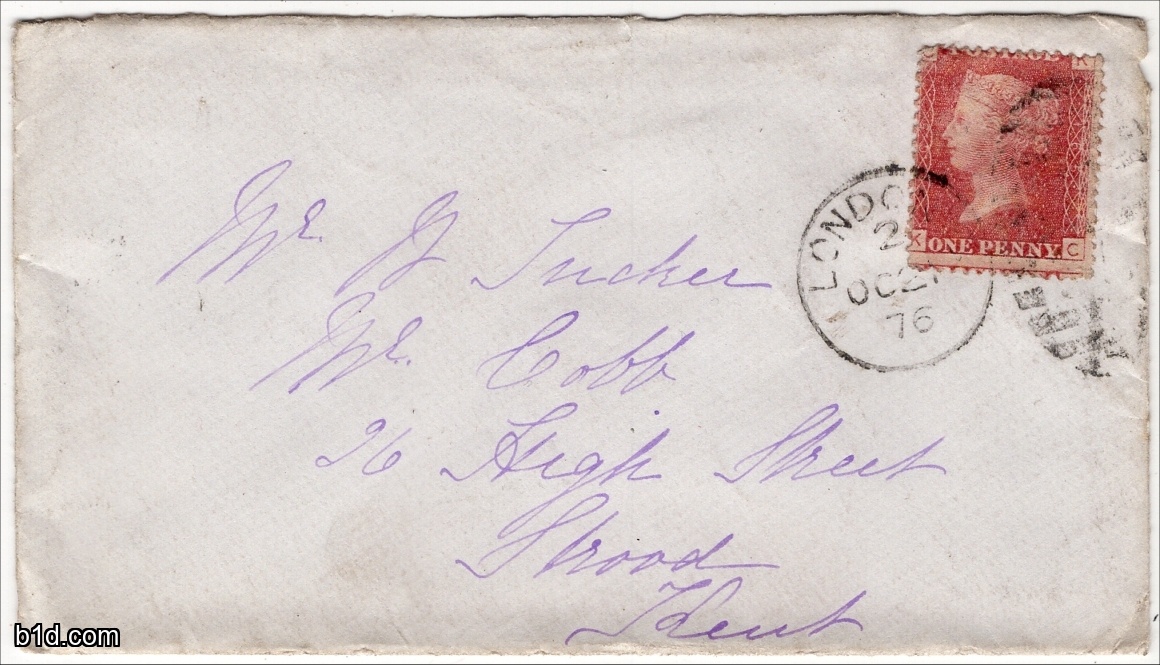 C POSTAGE K
K ONE PENNY C
LONDON
2
OC 21
76
Mr. J Tucker
Mr. Cobb
26 High Street
Strood
Kent
b1d.com